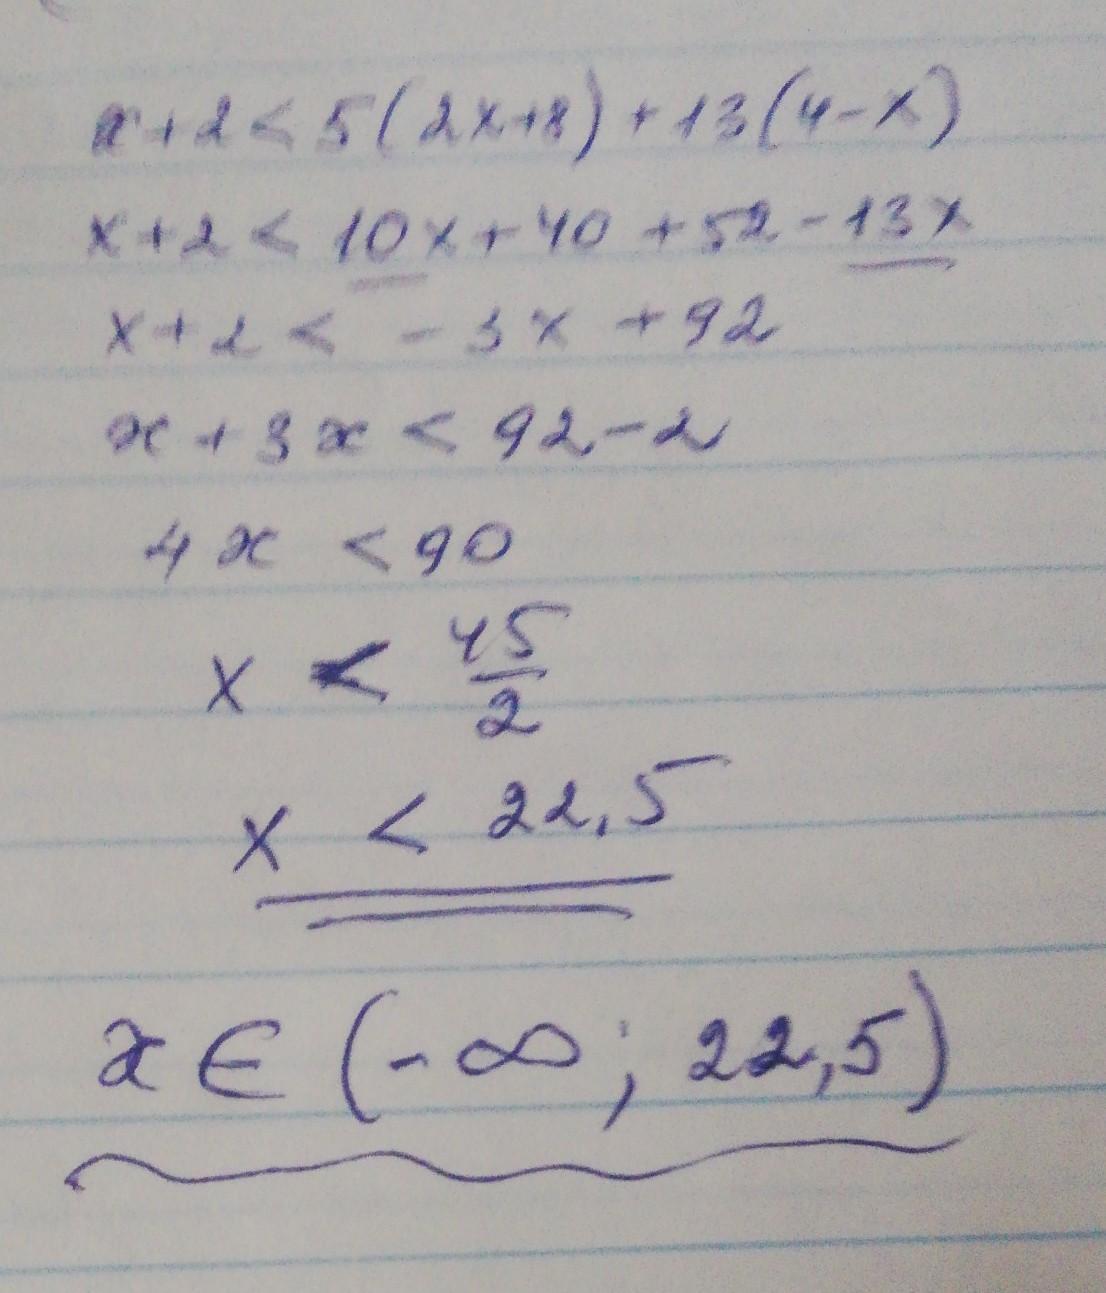 x+2<5(2x+8)+13(4-x)
x+2<10x+40+52-13x
x+2<-3x+92
x+3x<92-2
4x<90
x<45/2
x<22,5
x∈(-∞;22,5)